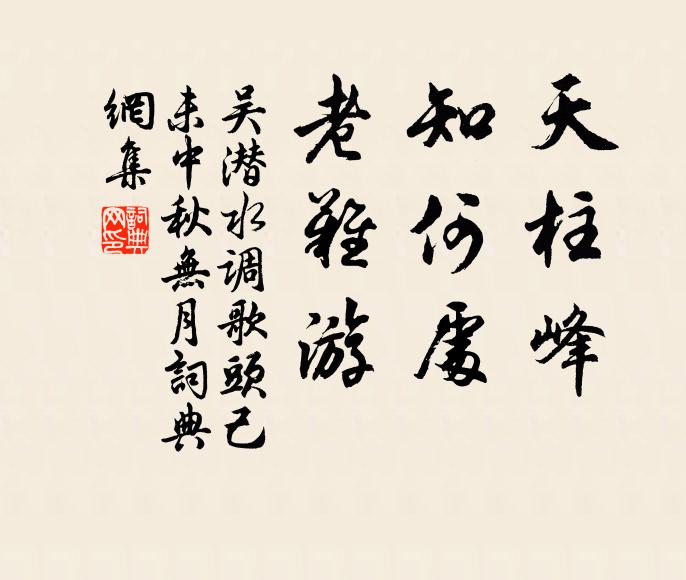 天柱峰
知何處
老難游
吴潜水调歌頭己
未中秋無月詞典
網集
詞典
网印